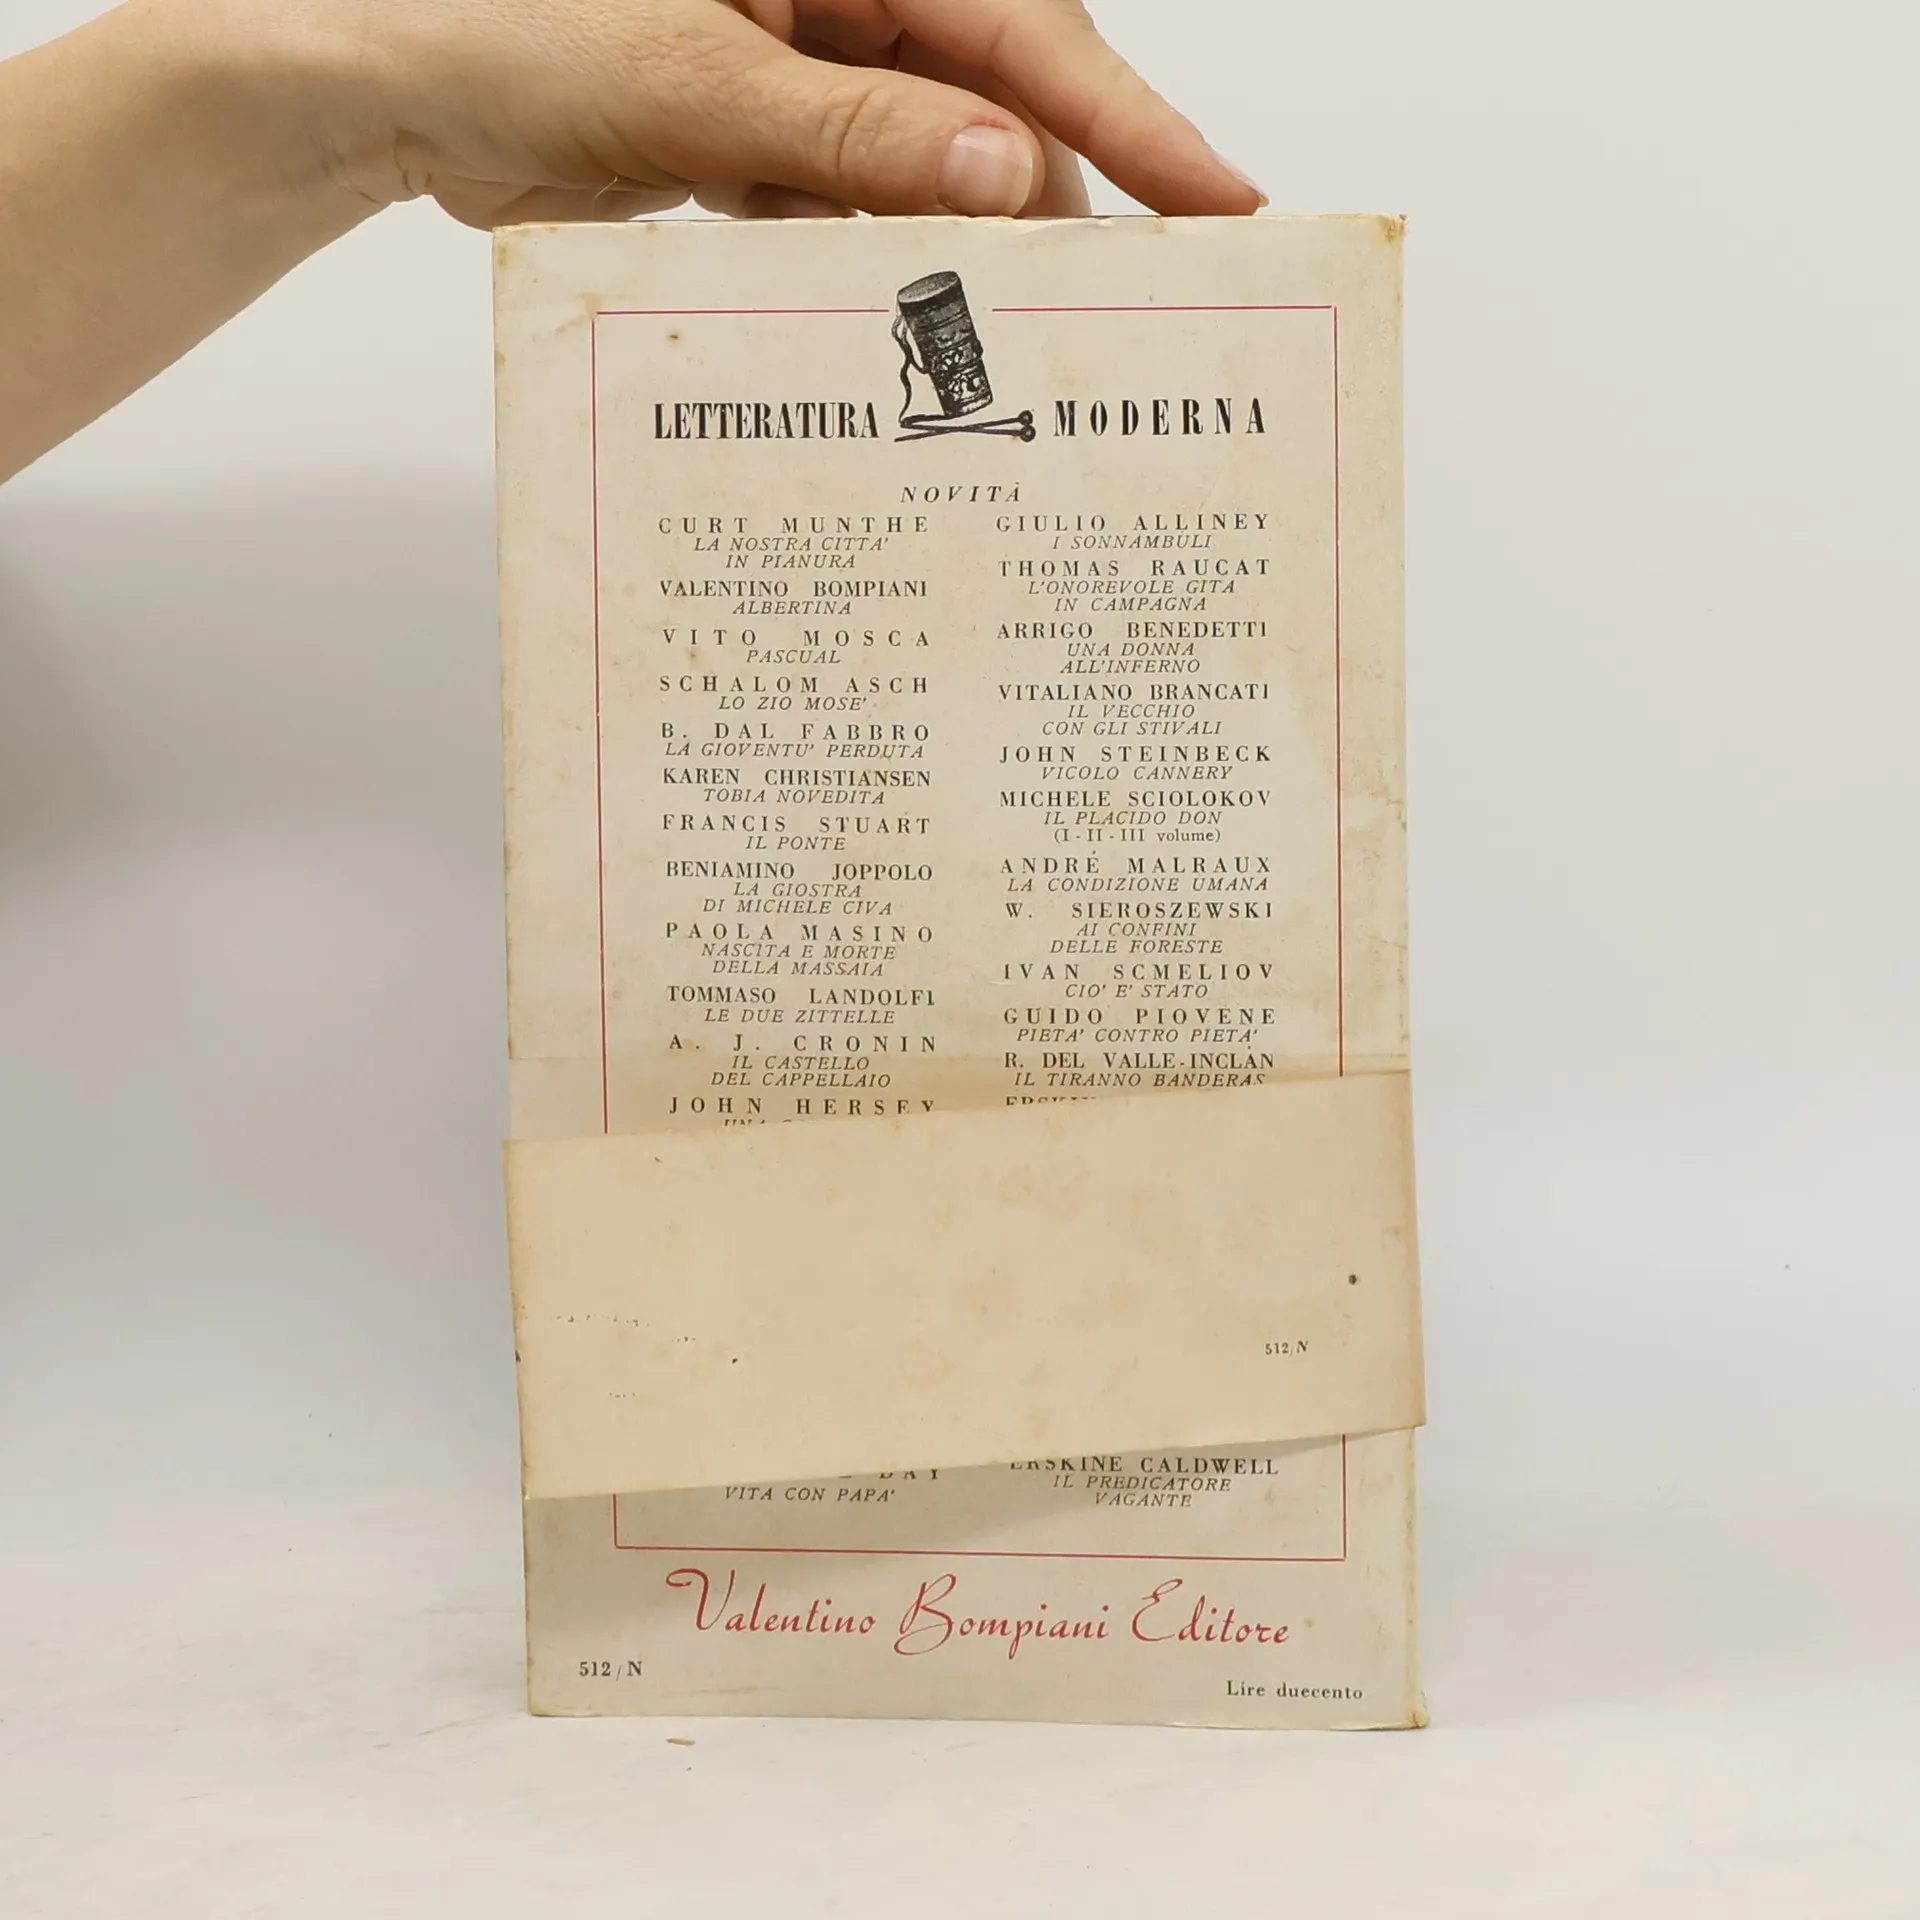 LETTERATURA MODERNA
NOVITÀ
CURT MUNTHE
LA NOSTRA CITTA'
IN PIANURA
VALENTINO BOMPIANI
ALBERTINA
VITO MOSCA
PASCUAL
SCHALOM ASCH
LO ZIO MOSE'
B. DAL FABBRO
LA GIOVENTU' PERDUTA
KAREN CHRISTIANSEN
TOBIA NOVEDITA
FRANCIS STUART
IL PONTE
BENIAMINO JOPPOLO
LA GIOSTRA
DI MICHELE CIVA
PAOLA MASINO
NASCITA E MORTE
DELLA MASSAIA
TOMMASO LANDOLFI
LE DUE ZITTELLE
A. J. CRONIN
IL CASTELLO
DEL CAPPELLAIO
JOHN HERSEY
DAY
VITA CON PAPA'
GIULIO ALLINEY
I SONNAMBULI
THOMAS RAUCAT
L'ONOREVOLE GITA
IN CAMPAGNA
ARRIGO BENEDETTI
UNA DONNA
ALL'INFERNO
VITALIANO BRANCATI
IL VECCHIO
CON GLI STIVALI
JOHN STEINBECK
VICOLO CANNERY
MICHELE SCIOLOKOV
IL PLACIDO DON
(I - II - III volume)
ANDRÉ MALRAUX
LA CONDIZIONE UMANA
W. SIEROSZEWSKI
AI CONFINI
DELLE FORESTE
IVAN SCMELIOV
CIO' E' STATO
GUIDO PIOVENE
PIETA' CONTRO PIETA'
R. DEL VALLE-INCLÀN
IL TIRANNO BANDERAS
512/N
ERSKINE CALDWELL
IL PREDICATORE
VAGANTE
Valentino Bompiani Editore
512/N
Lire duecento